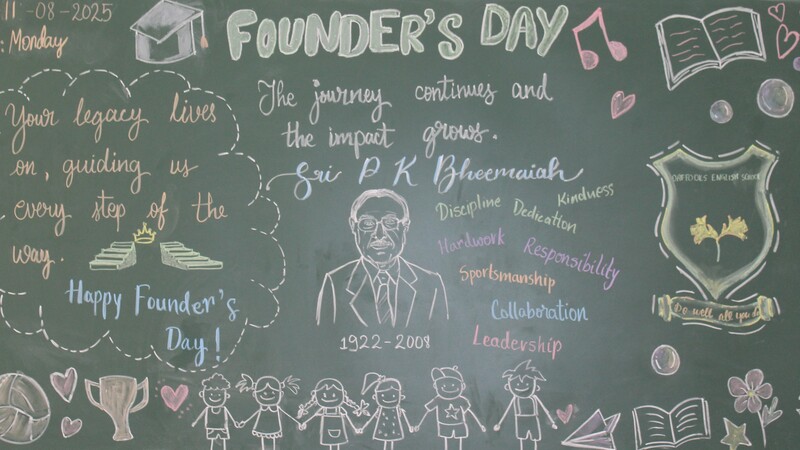 11-08-2025
Monday
FOUNDER'S DAY
Your legacy lives
on, guiding us
every step of the
way.
Happy Founder's
Day!
The journey continues and
the impact grows.
Sri P K Bheemaiah
1922-2008
Discipline
Dedication
Kindness
Hardwork
Responsibility
Sportsmanship
Collaboration
Leadership
DAFFODILS ENGLISH SCHOOL
Do well all you do